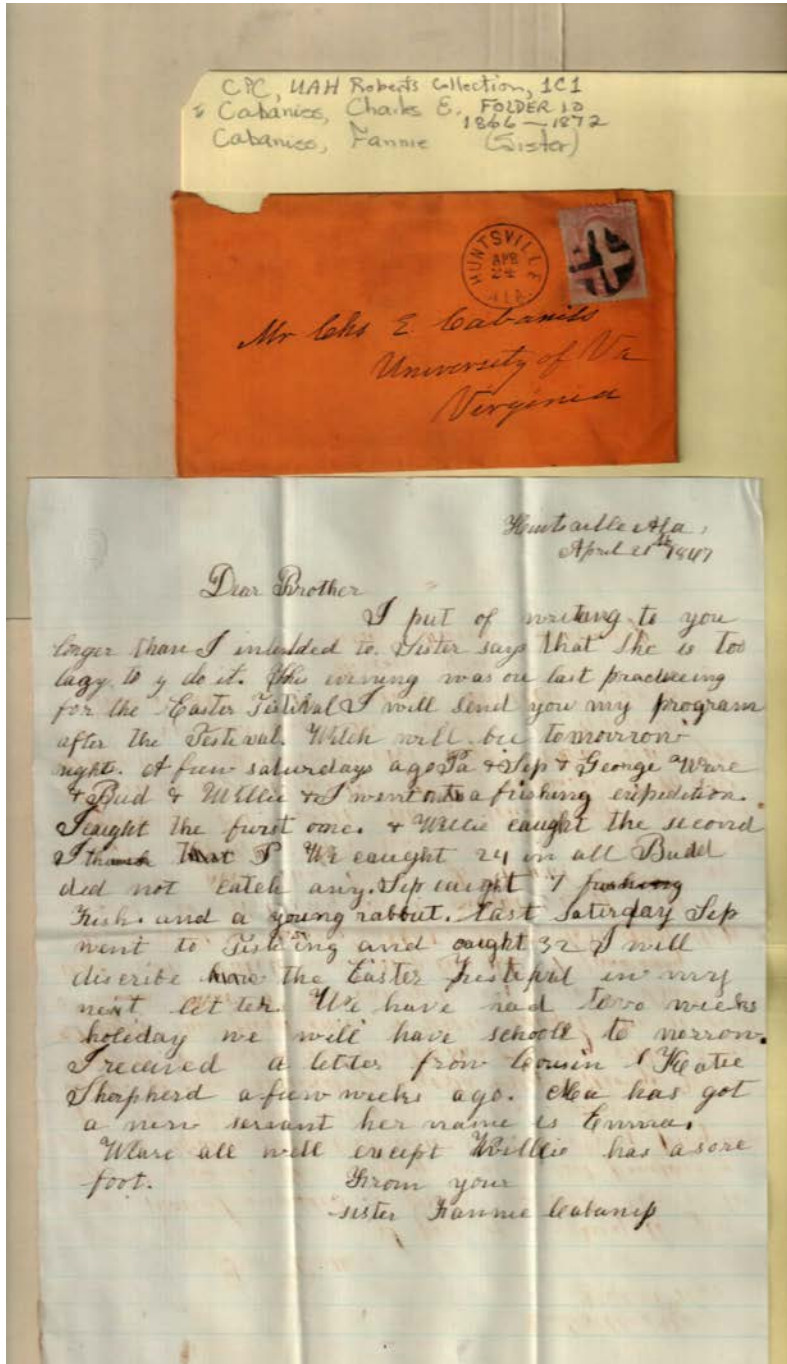 CPC, UAH Roberts Collection, 1C1
Cabaniss, Charles E. FOLDER 10
1866 — 1872
Cabaniss, Fannie (Sister)
HUNTSVILLE
APR
24
ALA.
Mr Chs E Cabaniss
University of Va
Virginia
Huntsville Ala,
April 21st 1867
Dear Brother
I put of writing to you
longer than I intended to. Sister says that she is too
lazy to y do it. This evening was our last practiceing
for the Easter Festival I will send you my program
after the Festival. Which will be tomorrow
night. A few saturdays ago Pa & Sep & George Ware
& Bud & Willie & I went to a fishing expedition.
I caught the furst one. & Willie caught the second
I We caught 24 in all Budd
did not catch any. Sep caught 7
Fish. and a young rabbut. Last Saturday Sep
went to Fishing and caught 32 I will
discribe the Easter Festival in my
next letter. We have had two weeks
holiday we will have schooll to morrow.
I received a letter from Cousin Katie
Sherpherd a few weeks ago. Ma has got
a new servant her name is Emma.
We are all well except Willie has a sore
foot. From your
sister Fannie Cabaniss